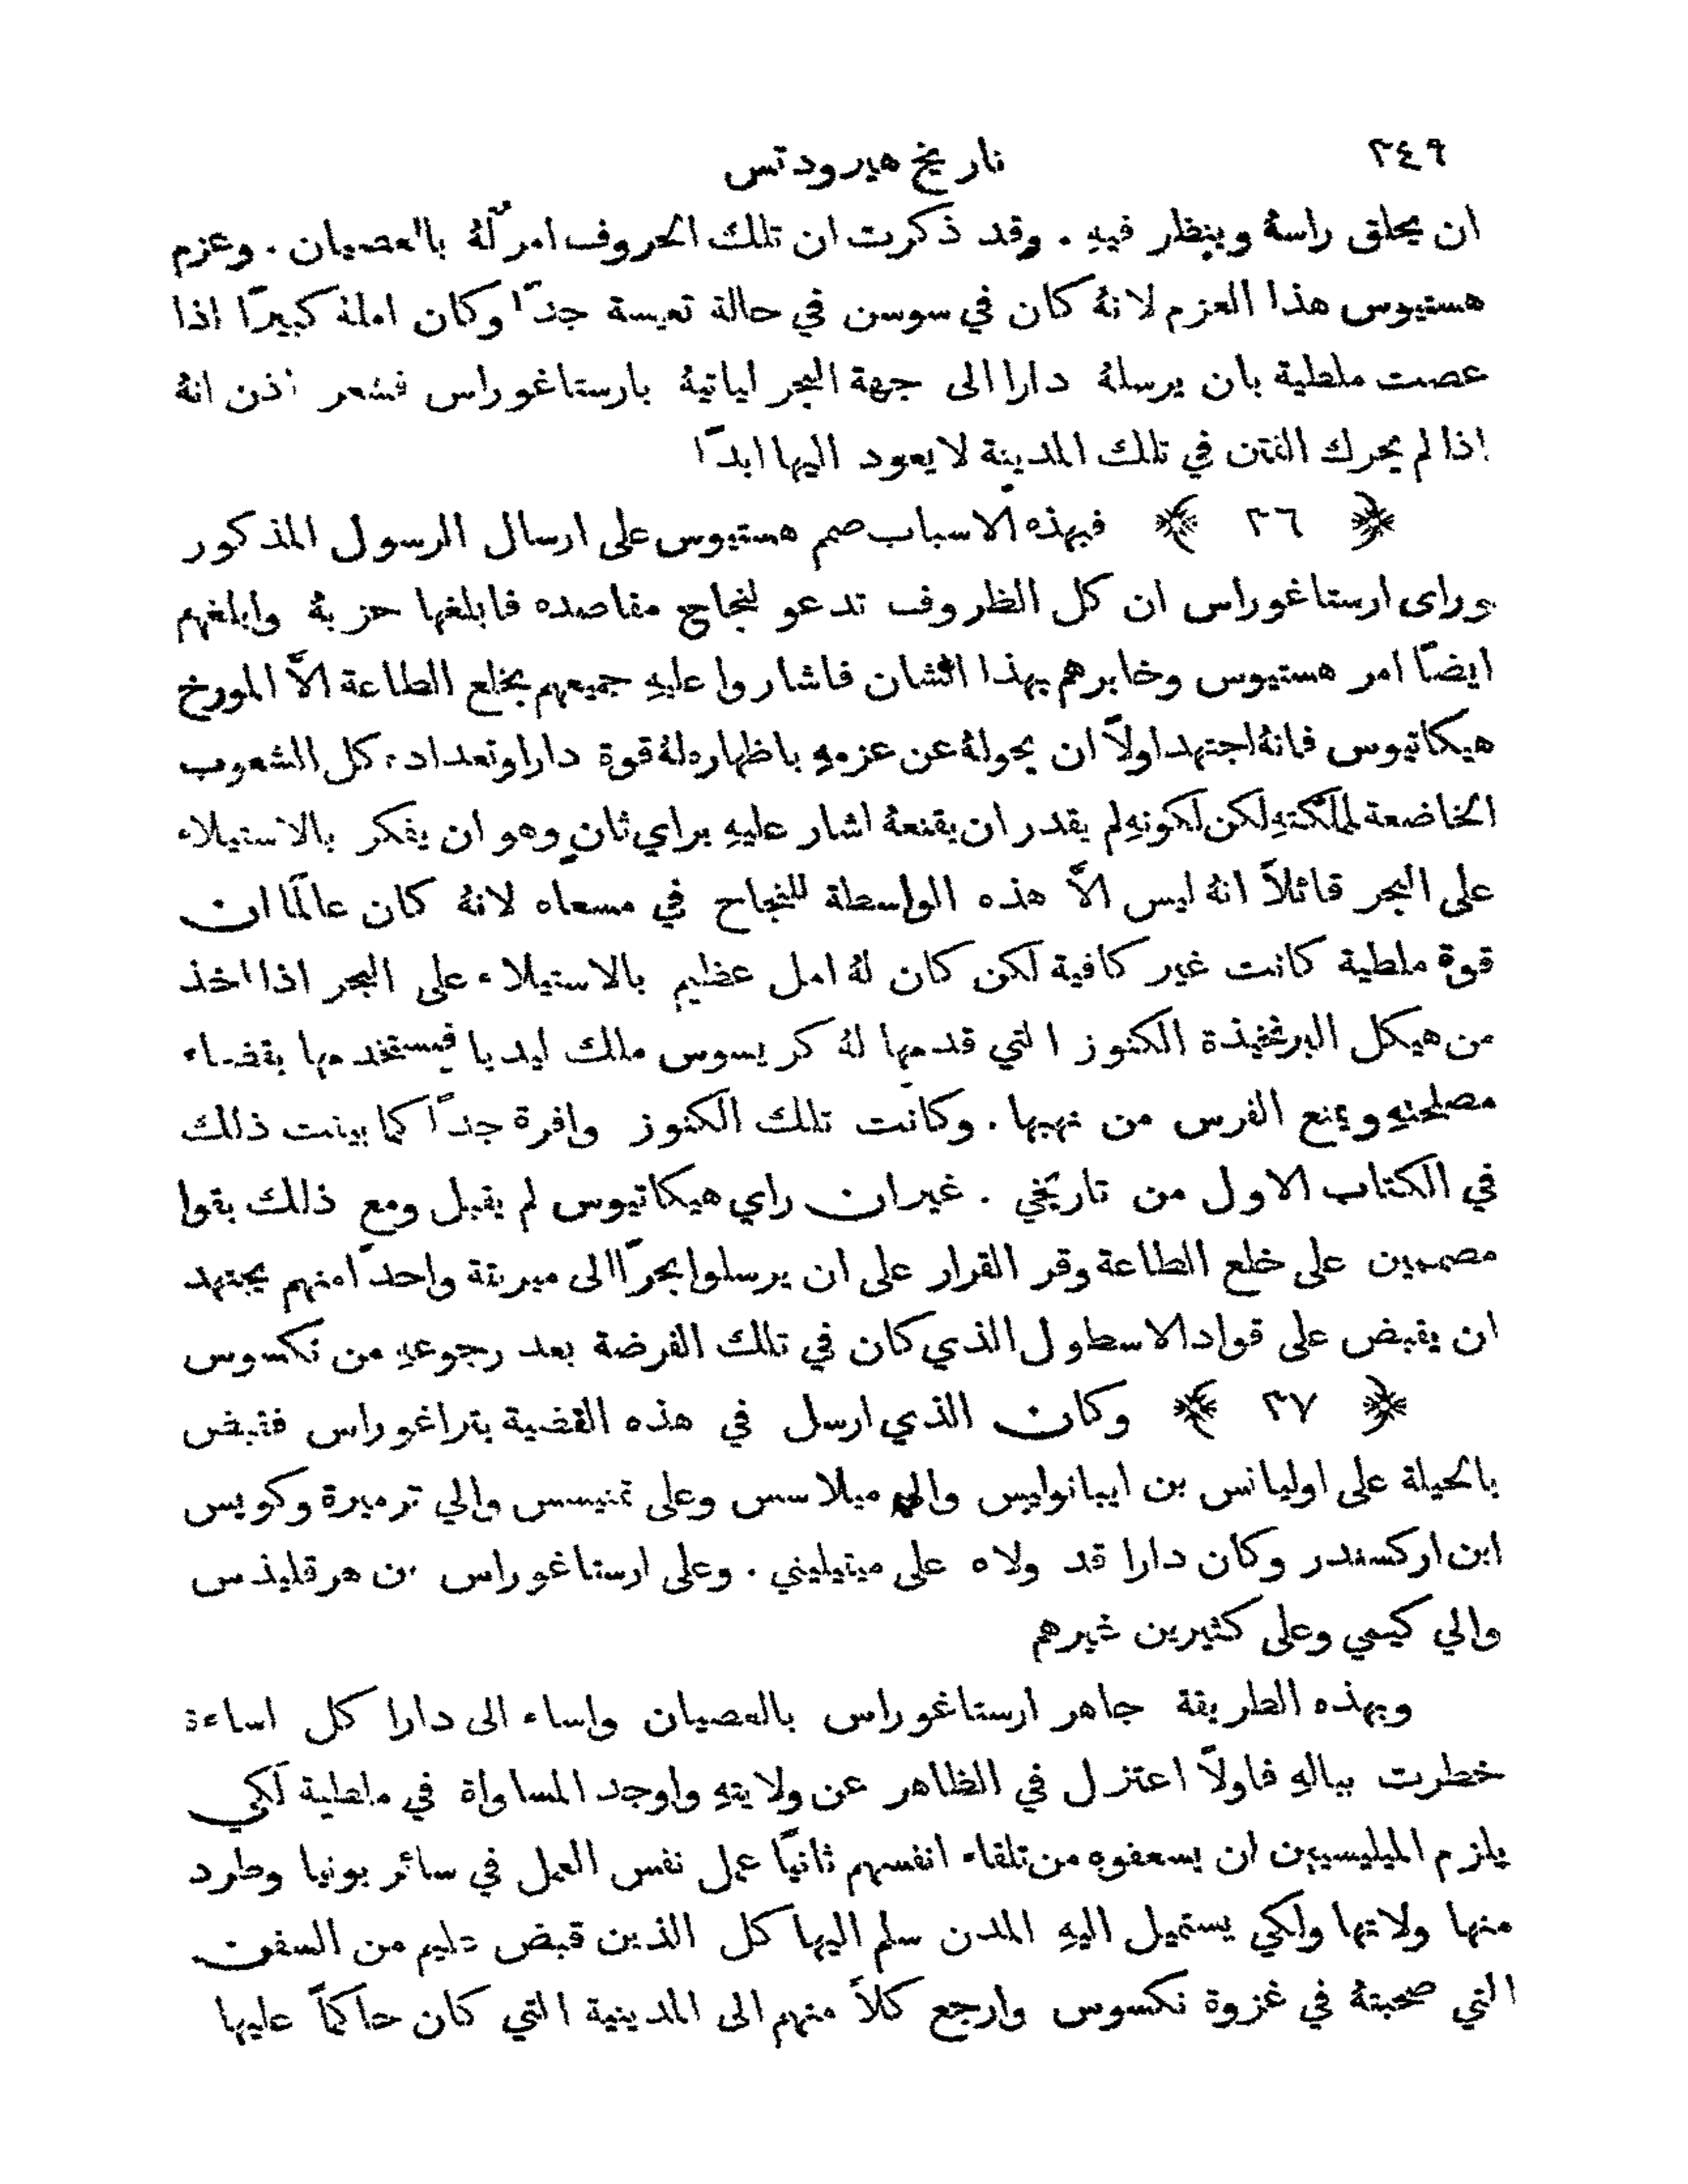 ٣٤٩ تاريخ هيرودتس
ان يحلق راسهُ وينظر فيهِ . وقد ذكرت ان تلك الحروف امرٌ لهُ بالعصيان . وعزم
هستيوس هذا العزم لانهُ كان في سوسن في حالة تعيسة جدًّا وكان املهُ كبيرًا اذا
عصت ملطية بان يرسلهُ دارا الى جهة البحر لياتيهُ بارستاغوراس فشعر اذن انهُ
اذا لم يحرك الفتن في تلك المدينة لا يعود اليها ابدًا
﴿ ٣٦ ﴾ فبهذه الاسباب صمم هستيوس على ارسال الرسول المذكور
وراى ارستاغوراس ان كل الظروف تدعو لنجاح مقاصده فابلغها حزبهُ وابلغهم
ايضًا امر هستيوس وخابرهم بهذا الشان فاشاروا عليهِ جميعهم بخلع الطاعة الاَّ المورخ
هيكاتيوس فانهُ اجتهد اولاً ان يحولهُ عن عزمهِ باظهاره لهُ قوة دارا وتعداده كل الشعوب
الخاضعة لمملكتهِ لكن لكونهِ لم يقدر ان يقنعهُ اشار عليهِ براي ثانٍ وهو ان يفكر بالاستيلاء
على البحر قائلاً انهُ ليس الاَّ هذه الواسطة للنجاح في مسعاه لانهُ كان عالمًا ان
قوة ملطية كانت غير كافية لكن كان لهُ امل عظيم بالاستيلاء على البحر اذا اخذ
من هيكل البرنخيذة الكنوز التي قدمها لهُ كريسوس ملك ليديا فيستخدمها بقضاء
مصلحتهِ ويمنع الفرس من نهبها . وكانت تلك الكنوز وافرة جدًّا كما بينت ذلك
في الكتاب الاول من تاريخي . غير ان راي هيكاتيوس لم يقبل ومع ذلك بقوا
مصممين على خلع الطاعة وقر القرار على ان يرسلوا بحرًا الى ميريقة واحدًا منهم يجتهد
ان يقبض على قواد الاسطول الذي كان في تلك الفرضة بعد رجوعهِ من نكسوس
﴿ ٣٧ ﴾ وكان الذي ارسل في هذه القضية يتراغوراس فقبض
بالحيلة على اوليانس بن ايبانوليس والي ميلاسس وعلى تمنيسس والي ترميرة وكويس
ابن اركسندر وكان دارا قد ولاه على ميتيليني . وعلى ارستاغوراس بن هرقليذس
والي كيمي وعلى كثيرين غيرهم
وبهذه الطريقة جاهر ارستاغوراس بالعصيان واساء الى دارا كل اساءة
خطرت ببالهِ فاولاً اعتزل في الظاهر عن ولايتهِ واوجد المساواة في ملطية لكي
يلزم الميليسيين ان يسعفوه من تلقاء انفسهم ثانيًا عمل نفس العمل في سائر يونيا وطرد
منها ولاتها ولكي يستميل اليهِ المدن سلم اليها كل الذين قبض عليهم من السفن
التي صحبتهُ في غزوة نكسوس وارجع كلاً منهم الى المدينية التي كان حاكمًا عليها